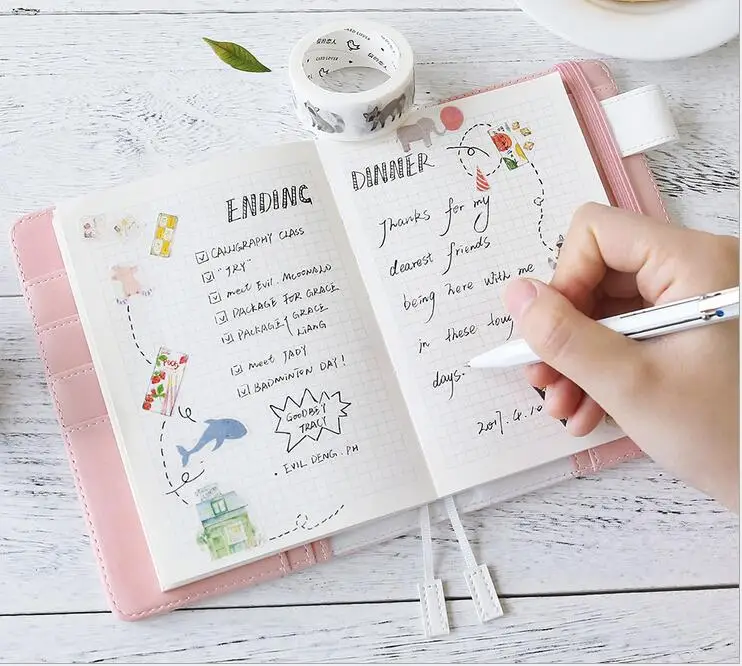 ENDING
CALLIGRAPHY CLASS
"TRY"
meet Evil. McDONALD
PACKAGE FOR GRACE
PACKAGE
LIANG
meet JADY
BADMINTON DAY!
GOODBEY
TRACY
• EVIL DENG. PH
DINNER
Thanks for my
dearest friends
being here with me
in these
days.
2017.4.10